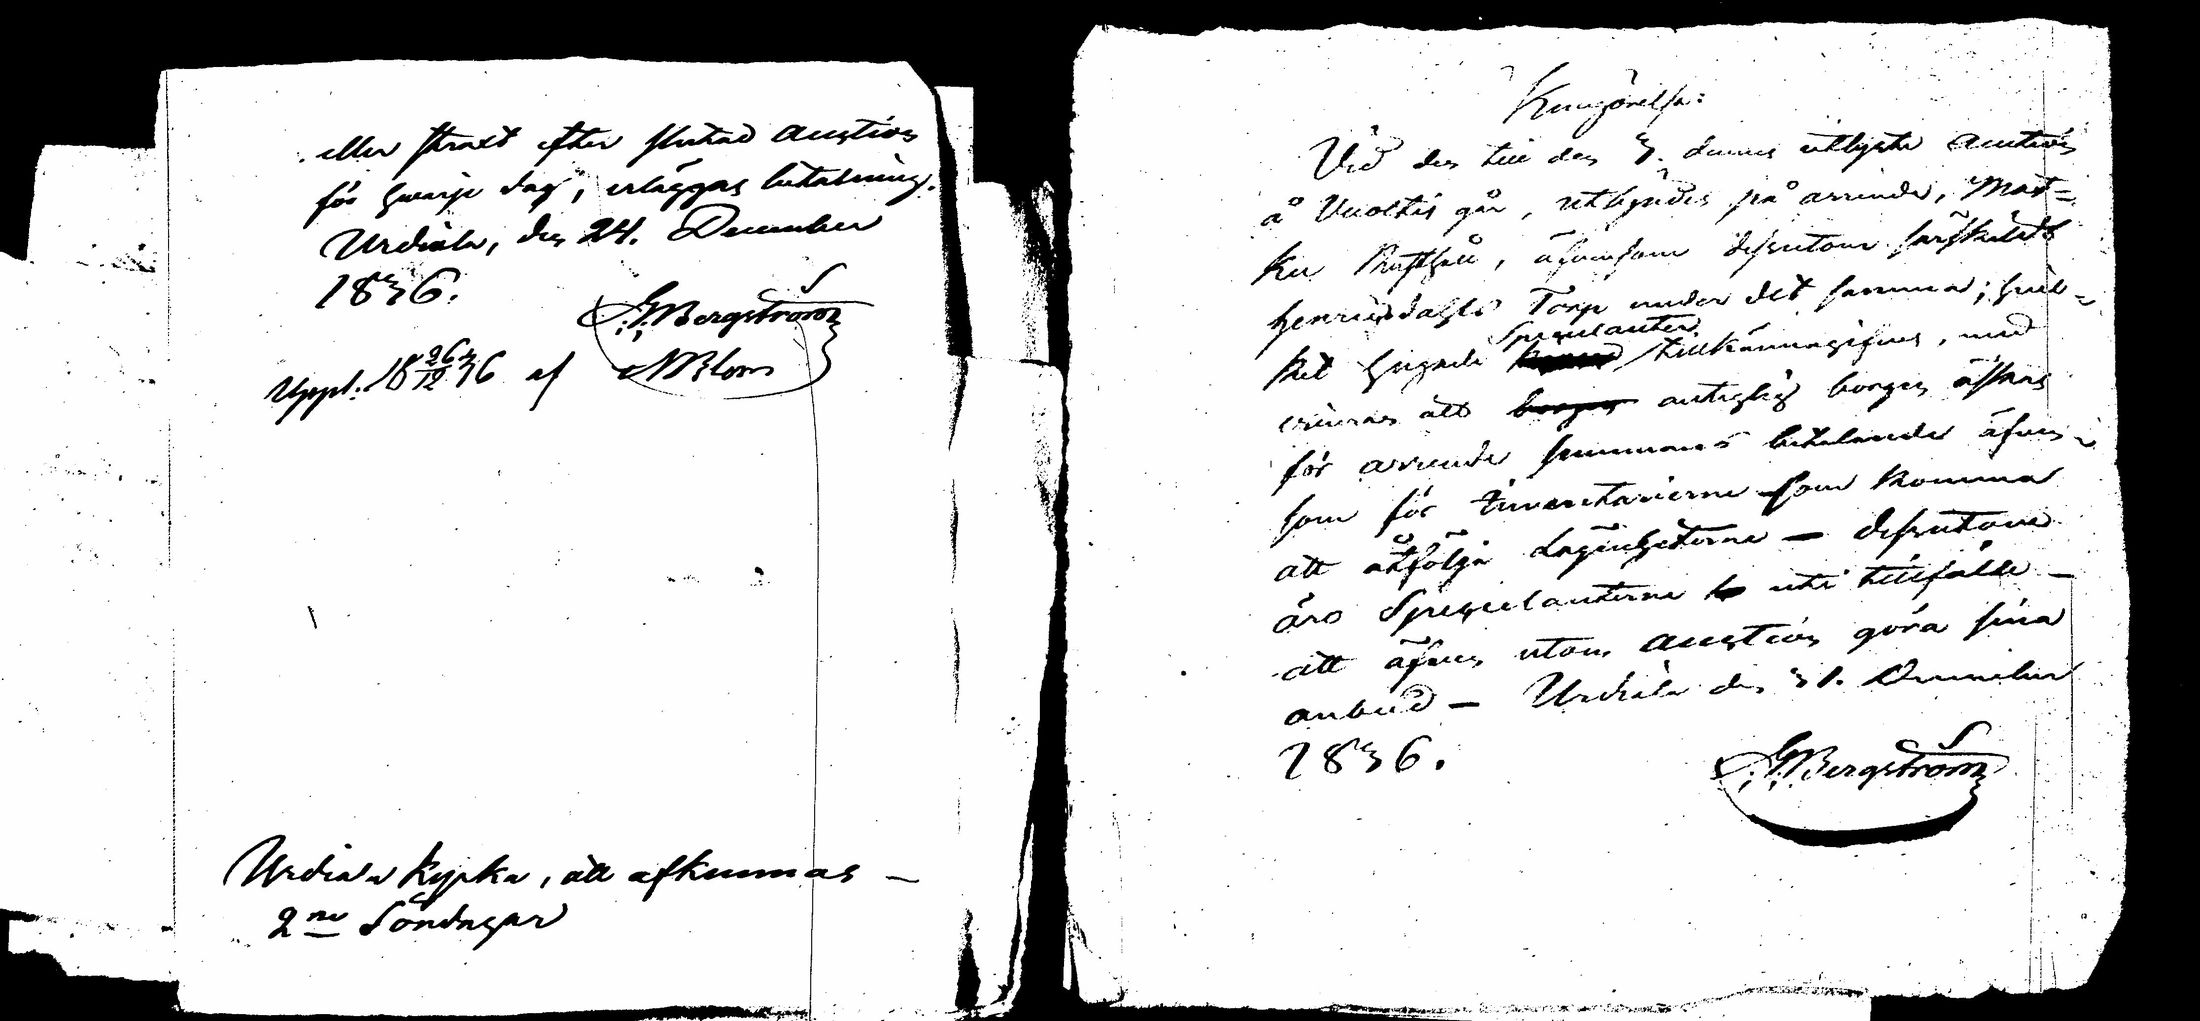 eller straxt efter slutad auction
för hvarje dag, erlägges betalning.
Urdiala, den 24. December
1836.
G. Bergström
Uppl. 18 26/12 36 af N Blom
Urdiala kyrka, att afkunnas –
2ne Söndagar
Kungörelse:
Vid den till den 3. dennes utlyste auction
å Vuoltis går, utbjudes på arrende, Mat=
ku Rusthåll, äfvensom dessutom särskildt
Henricsdahls Torp under det samma; hvil=
ket hugade Speculanter tillkännagifves, med
erinran att antaglig borgen äskas
för arrende summans betalande äfven=
som för Inventarierne som komma
att åtfölja Lägenheterne — dessutom
äro Speculanterne uti tillfälle –
att äfven utom auction göra sina
anbud — Urdiala den 31. December
1836.
G. Bergström